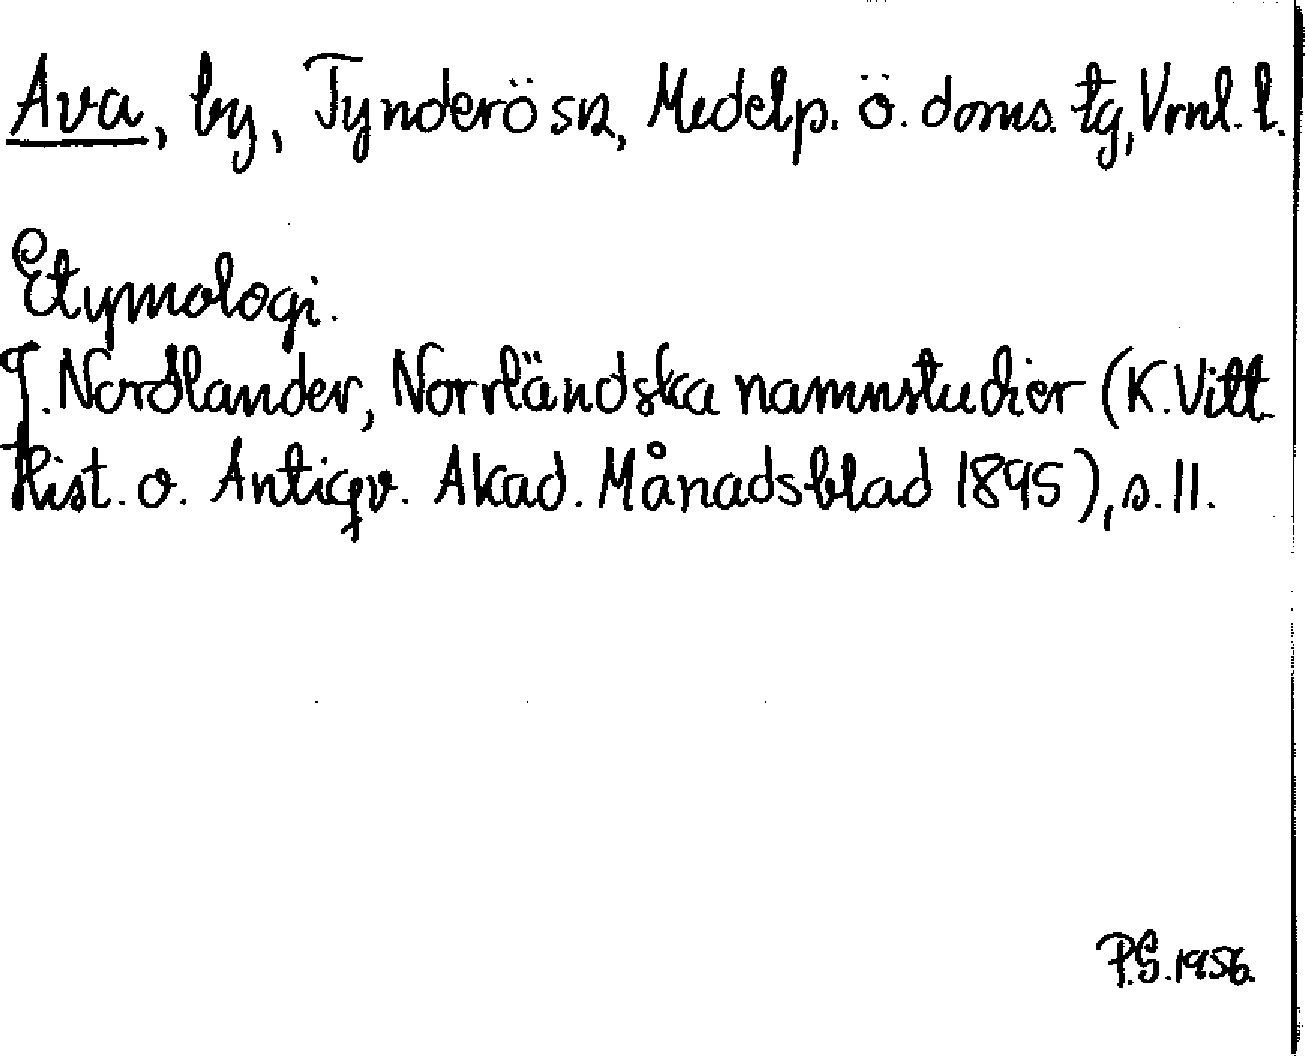 Ava, by, Tynderö sn, Medelp. ö. doms. tg, Vrnl. l.
Etymologi.
J. Nordlander, Norrländska namnstudier (K. Vitt.
Hist. o. Antiqv. Akad. Månadsblad 1895), s. 11.
P.S. 1956.